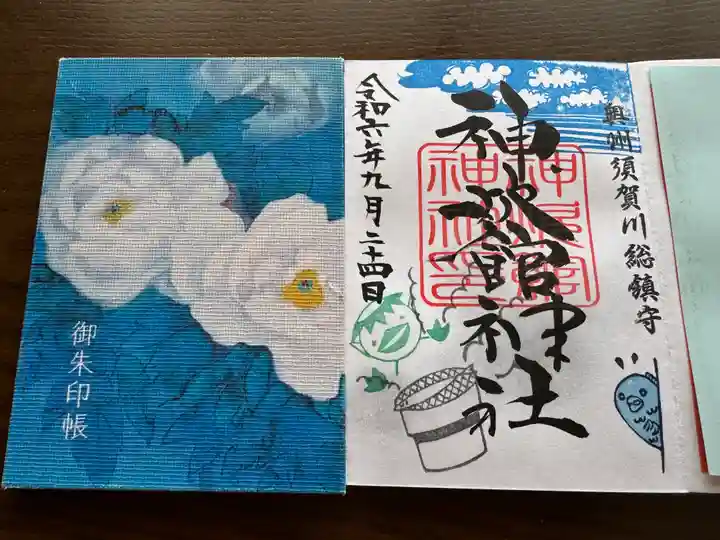 御朱印帳
奥州須賀川総鎮守
神炊館神社
令和六年九月二十四日